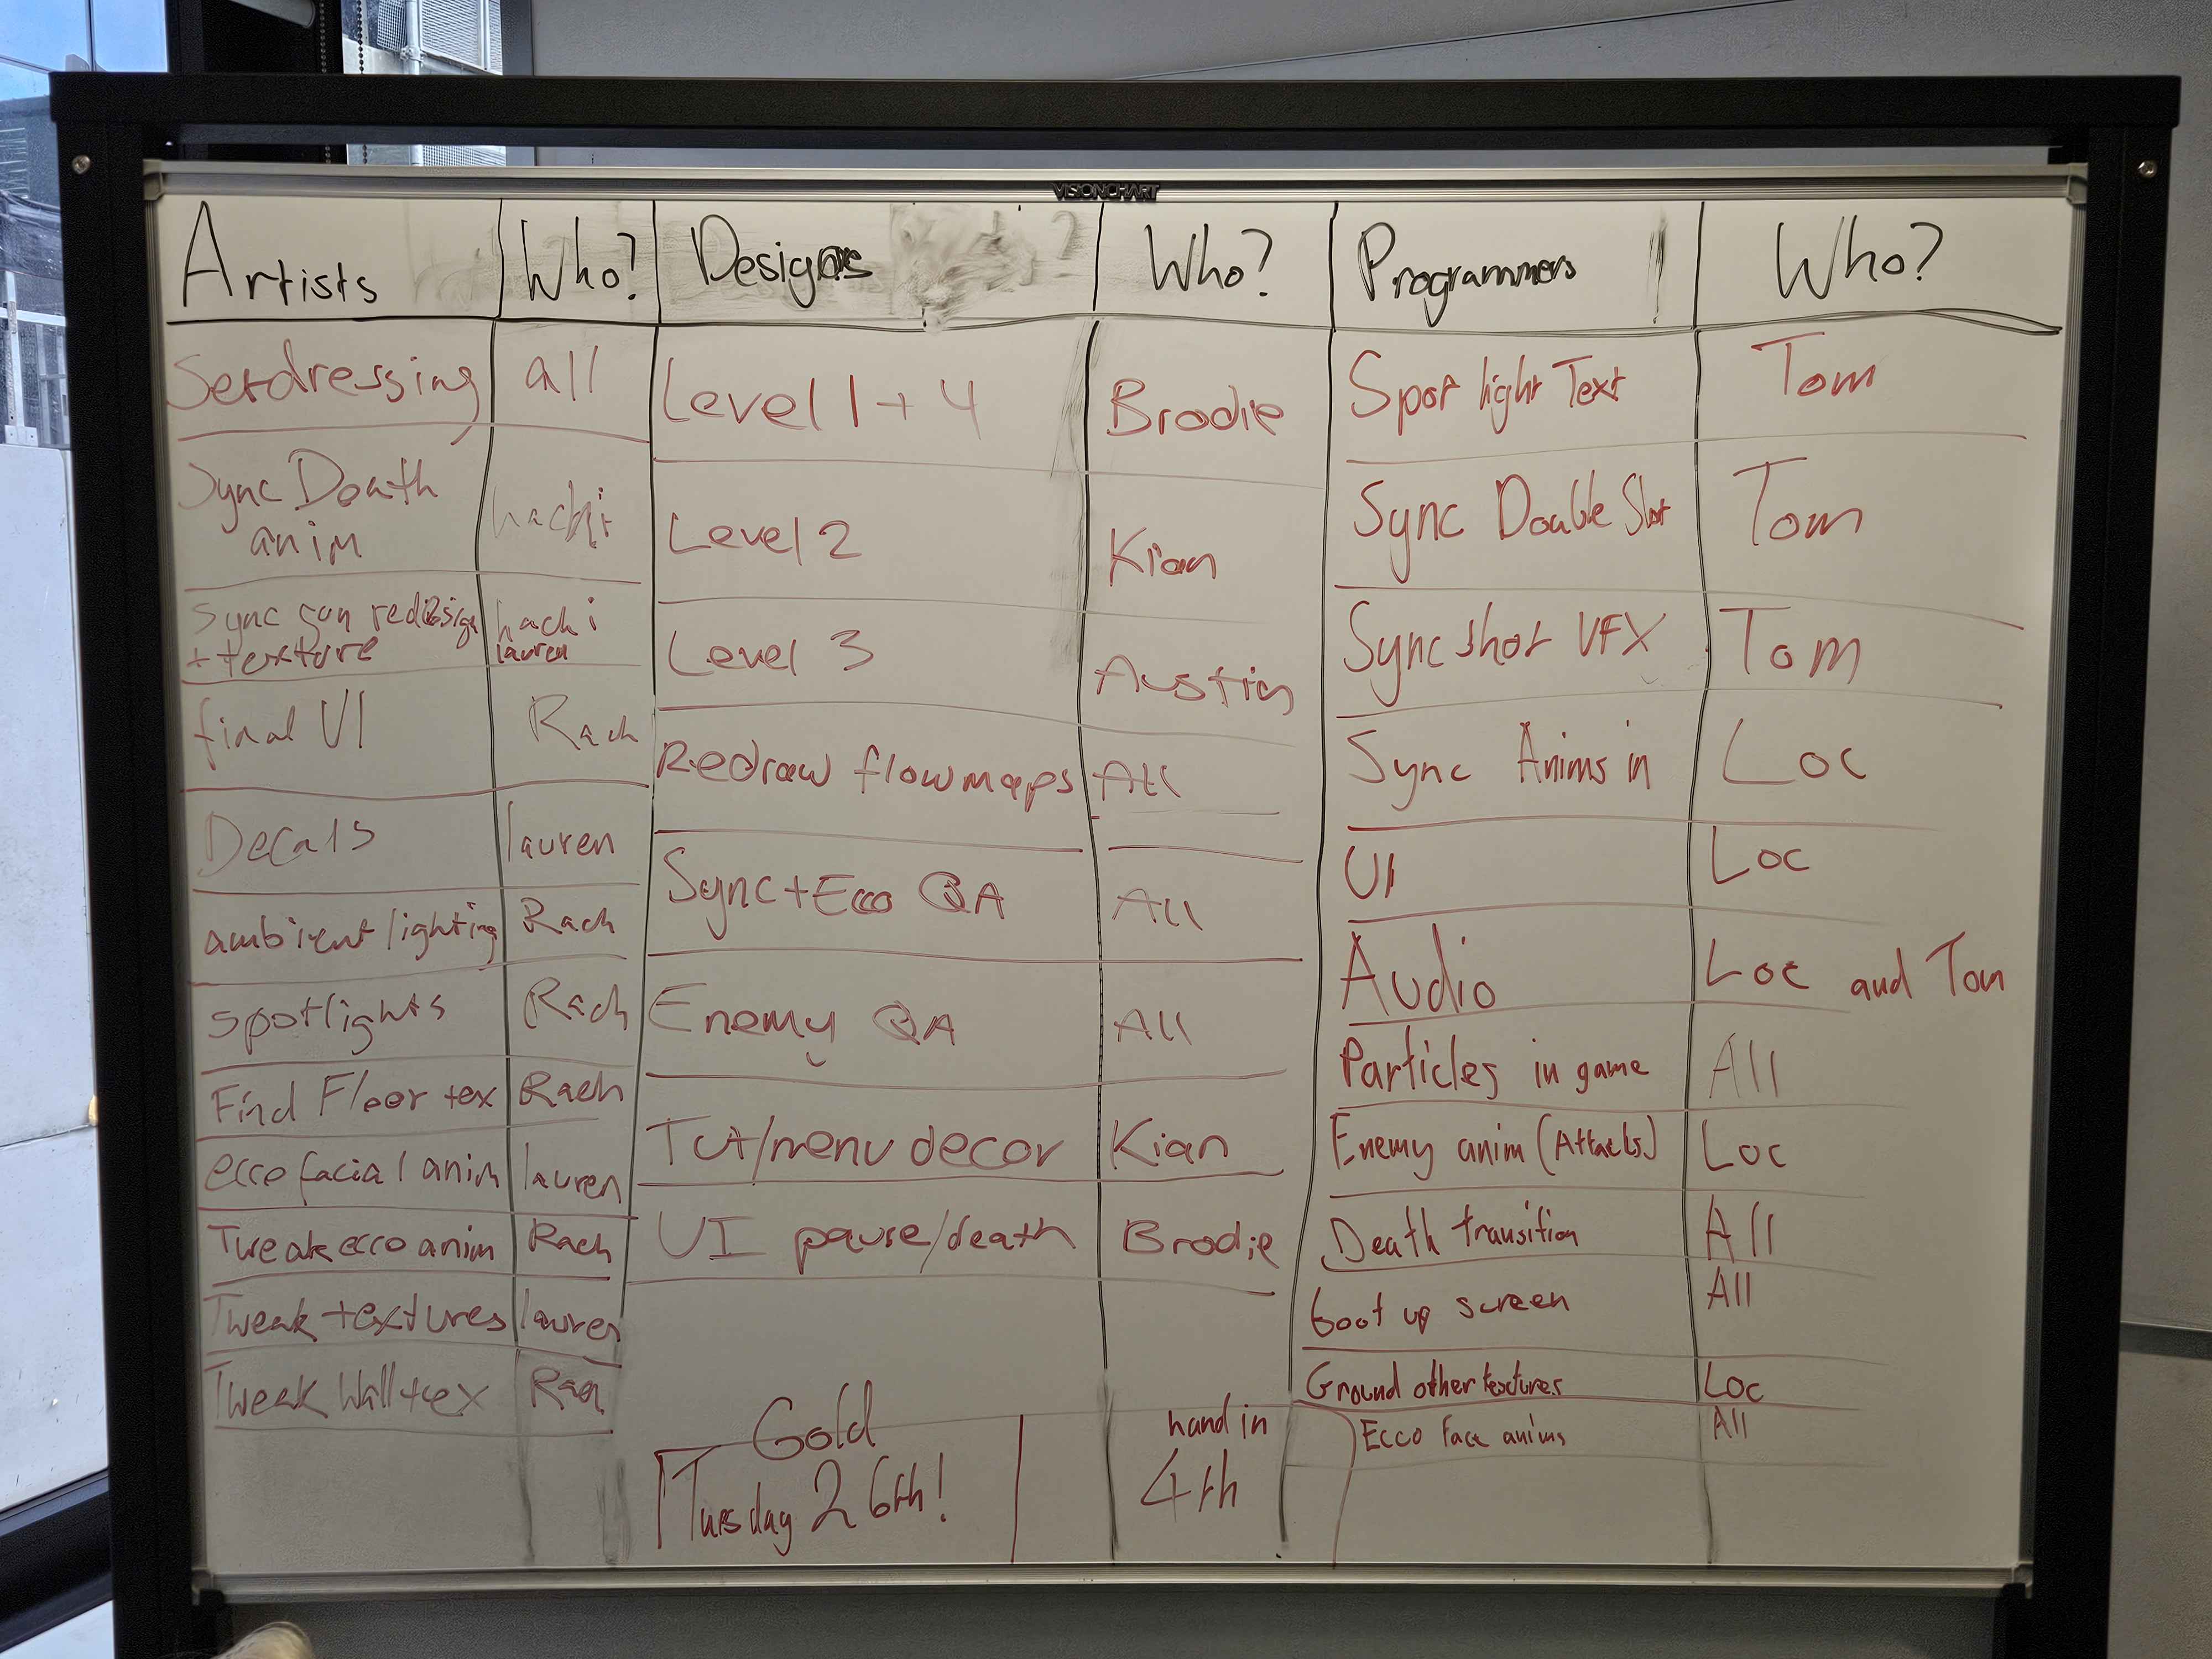 VISIONCHART
Artists Who? Designers Who? Programmers Who?
Setdressing all
Sync Death
anim
hachi
Sync gun redesign
+ texture
hachi
lauren
final UI Rach
Decals lauren
ambient lighting Rach
spotlights Rach
Find Floor tex Rach
ecco facial anim lauren
Tweak ecco anim Rach
Tweak textures lauren
Tweak Wall tex
Level 1 + 4 Brodie
Level 2 Kian
Level 3 Austin
Redraw flowmaps All
Sync + Ecco QA All
Enemy QA All
Tut/menu decor Kian
UI pause/death Brodie
Gold
Tuesday 26th!
hand in
4th
Spot light Text Tom
Sync Double Shot Tom
Sync shot VFX Tom
Sync Anims in Loc
UI Loc
Audio Loc and Tom
Particles in game All
Enemy anim (Attacks) Loc
Death transition All
boot up screen All
Ground other textures Loc
Ecco Face anims All